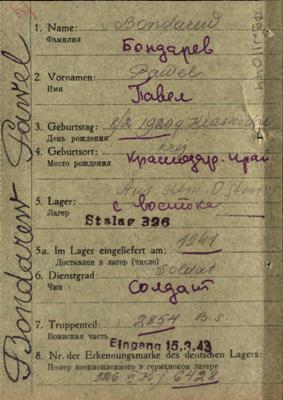 Bondarew Pawel
1. Name: Bondarew
Фамилия Бондарев
2. Vornamen: Pawel
Имя Павел
3. Geburtstag: 8/2 1920g Krasnodar
День рождения
4. Geburtsort:
Место рождения Краснодар. край
Aus dem Osten
5. Lager: с востока
Лагер
Stalag 326
5a. Im Lager eingeliefert am: 1941
Доставлен в лагер (число)
6. Dienstgrad: Soldat
Чин Солдат
7. Truppenteil: 2854 B.s.
Воинская часть
Eingang 15.3.43
8. Nr. der Erkennungsmarke des deutschen Lagers:
Номер военнопленного в германском лагере
326 / 6428